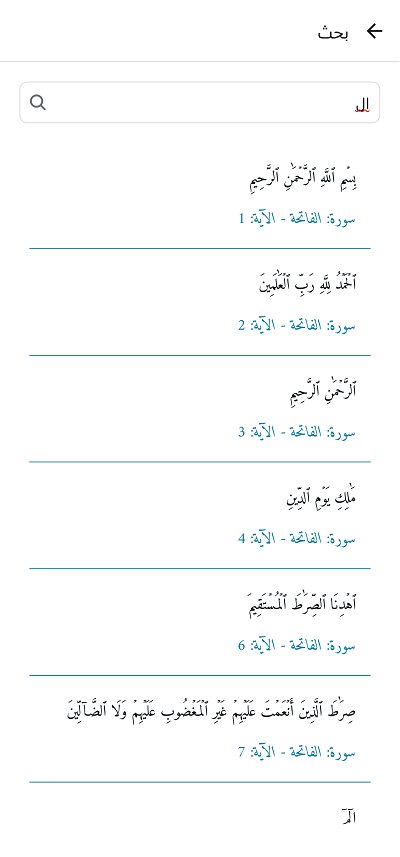 بحث
ال
بِسْمِ ٱللَّهِ ٱلرَّحْمَٰنِ ٱلرَّحِيمِ
سورة: الفاتحة - الآية: 1
ٱلْحَمْدُ لِلَّهِ رَبِّ ٱلْعَٰلَمِينَ
سورة: الفاتحة - الآية: 2
ٱلرَّحْمَٰنِ ٱلرَّحِيمِ
سورة: الفاتحة - الآية: 3
مَٰلِكِ يَوْمِ ٱلدِّينِ
سورة: الفاتحة - الآية: 4
ٱهْدِنَا ٱلصِّرَٰطَ ٱلْمُسْتَقِيمَ
سورة: الفاتحة - الآية: 6
صِرَٰطَ ٱلَّذِينَ أَنْعَمْتَ عَلَيْهِمْ غَيْرِ ٱلْمَغْضُوبِ عَلَيْهِمْ وَلَا ٱلضَّآلِّينَ
سورة: الفاتحة - الآية: 7
الٓمٓ